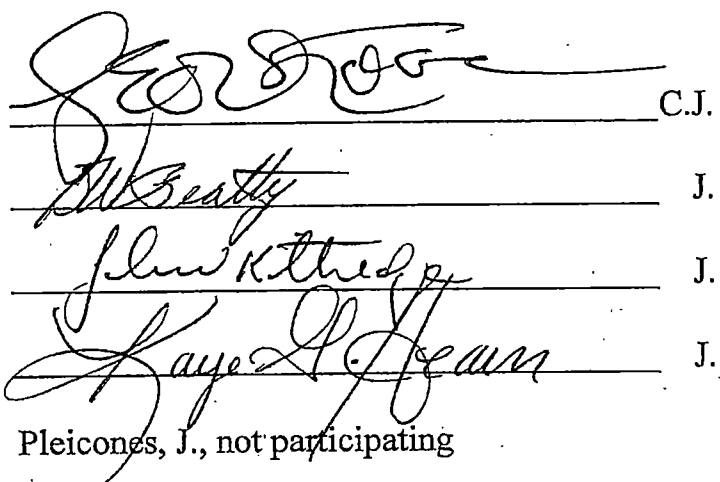 C.J.
DW Beatty J.
John Kittredge J.
Kaye G. Hearn J.
Pleicones, J., not participating